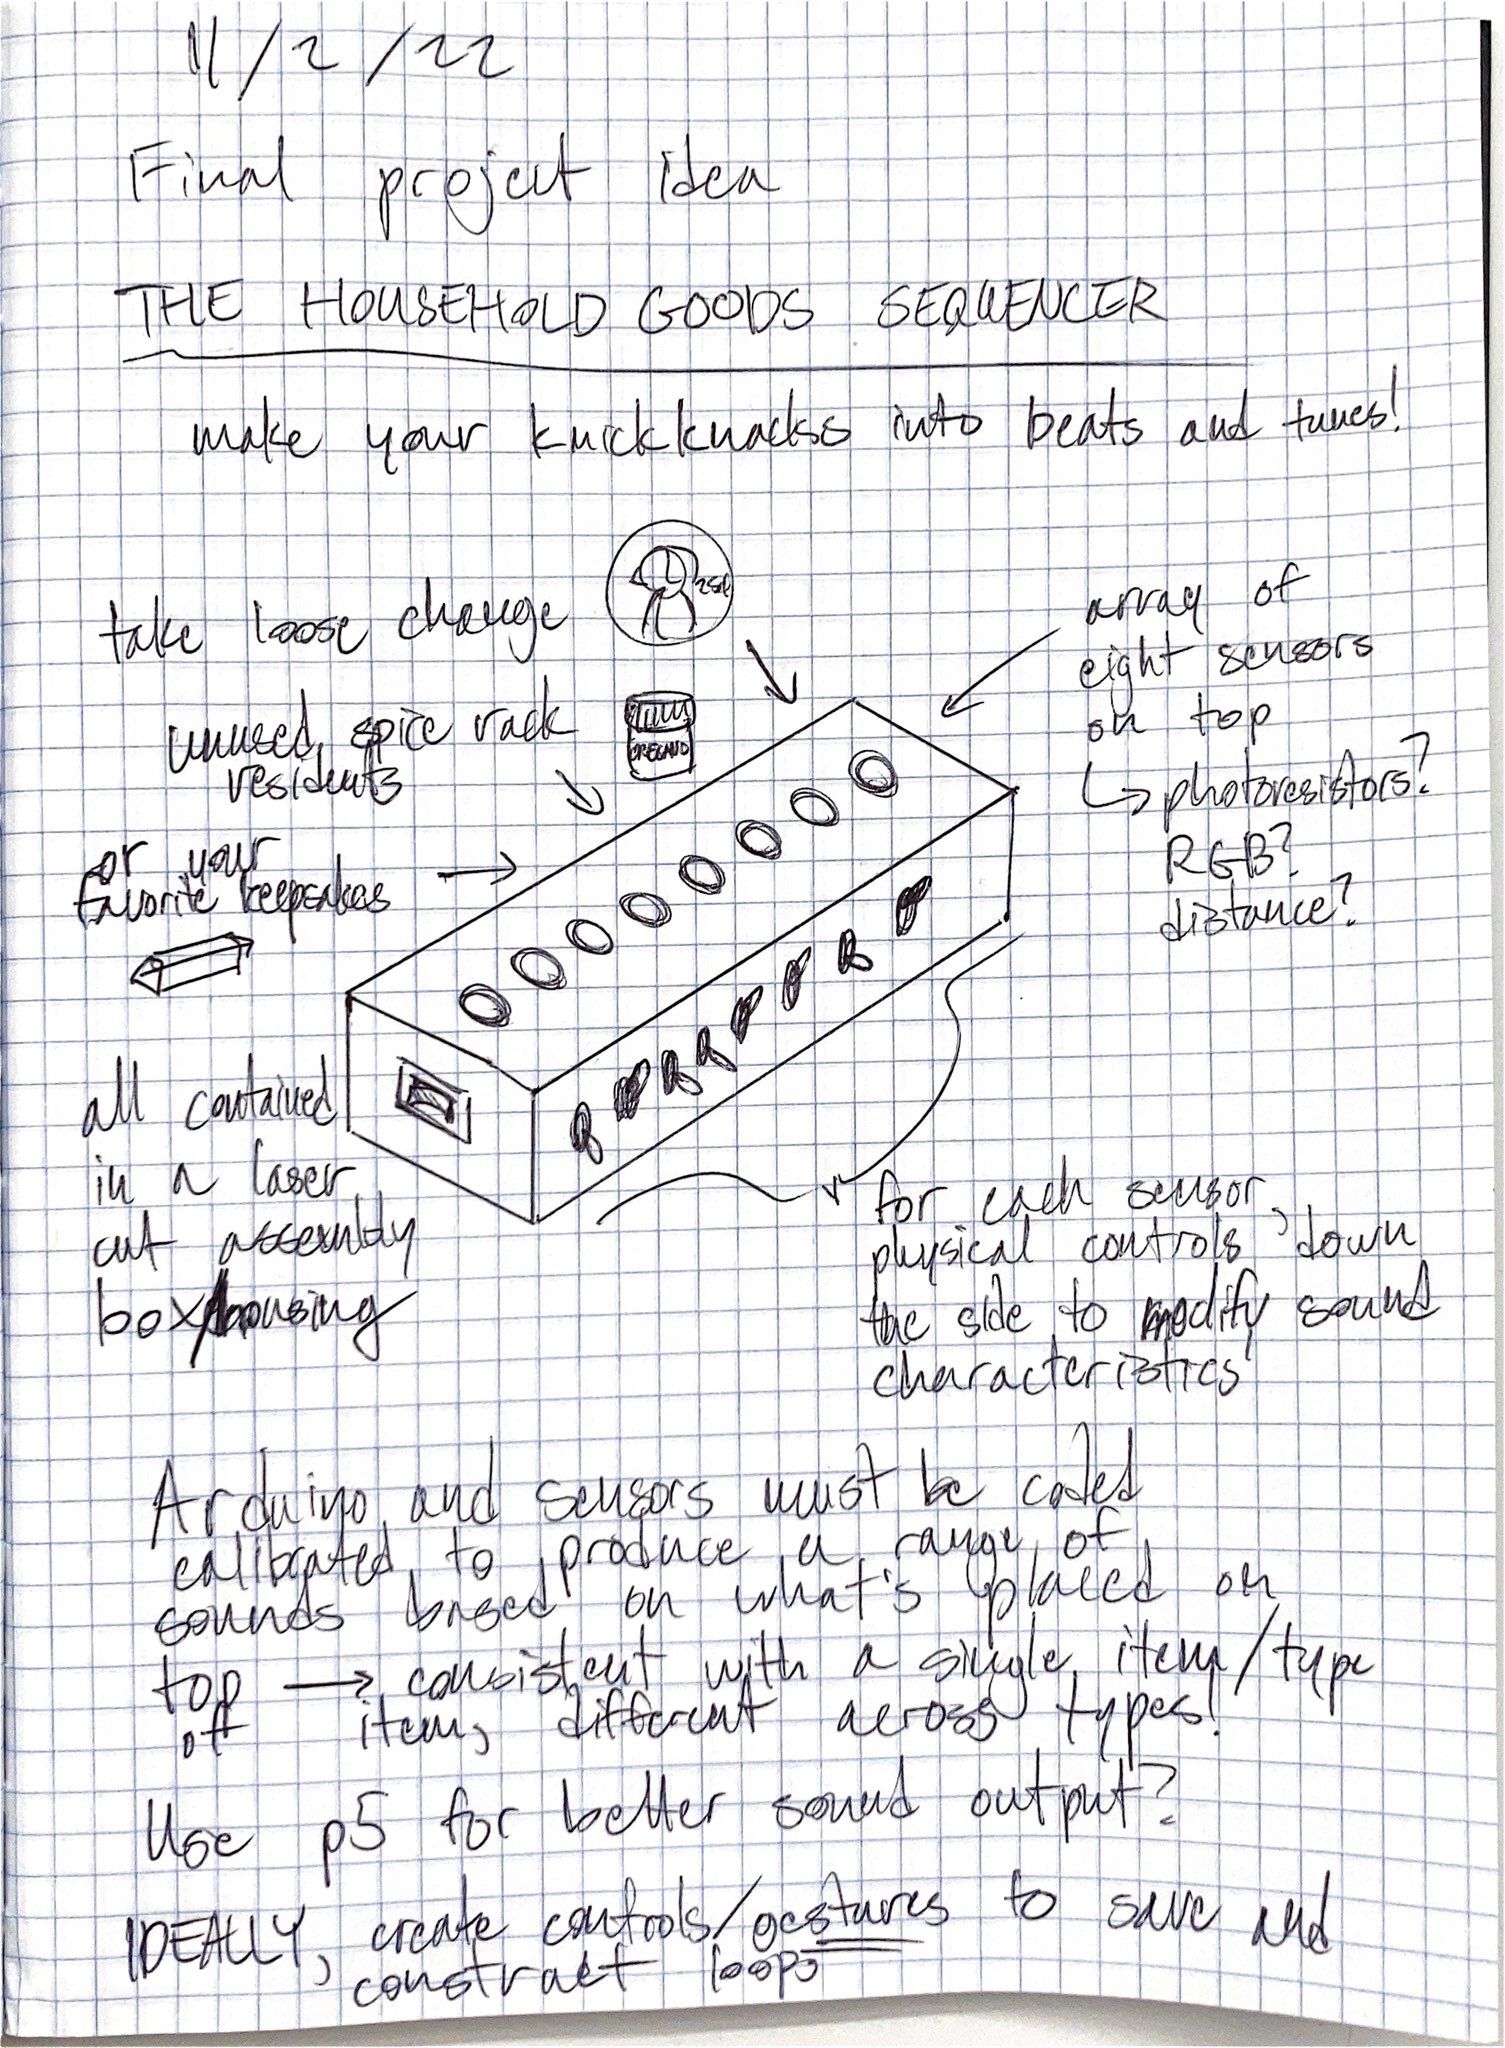 11/2/22
Final project idea
THE HOUSEHOLD GOODS SEQUENCER
make your knickknacks into beats and tunes!
take loose change
25¢
unused spice rack
residents
OREGANO
or your
favorite keepsakes
array of
eight sensors
on top
↳ photoresistors?
RGB?
distance?
all contained
in a laser
cut assembly
box/housing
for each sensor,
physical controls down
the side to modify sound
characteristics
Arduino and sensors must be coded
calibrated to produce a range of
sounds based on what's placed on
top → consistent with a single item/type
of item, different across types!
Use p5 for better sound output?
IDEALLY, create controls/gestures to save and
construct loops